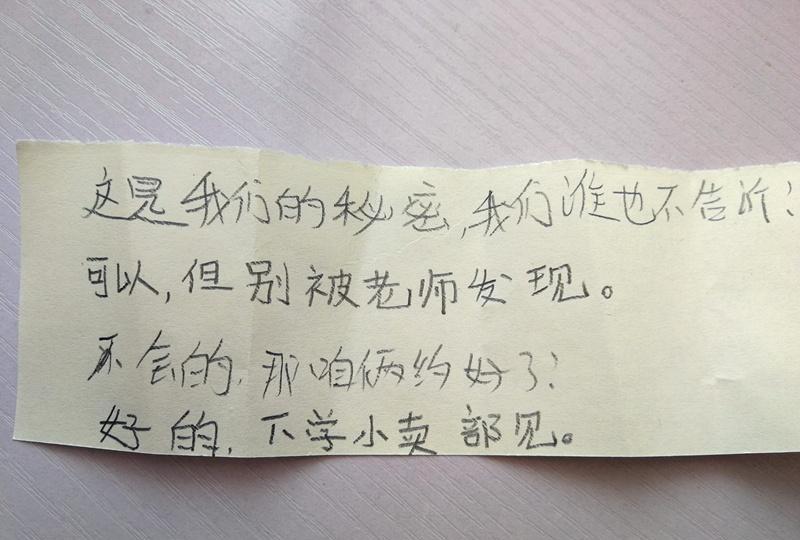 这是我们的秘密,我们谁也不告诉!
可以,但别被老师发现。
不会的,那咱俩约好了!
好的,下学小卖部见。